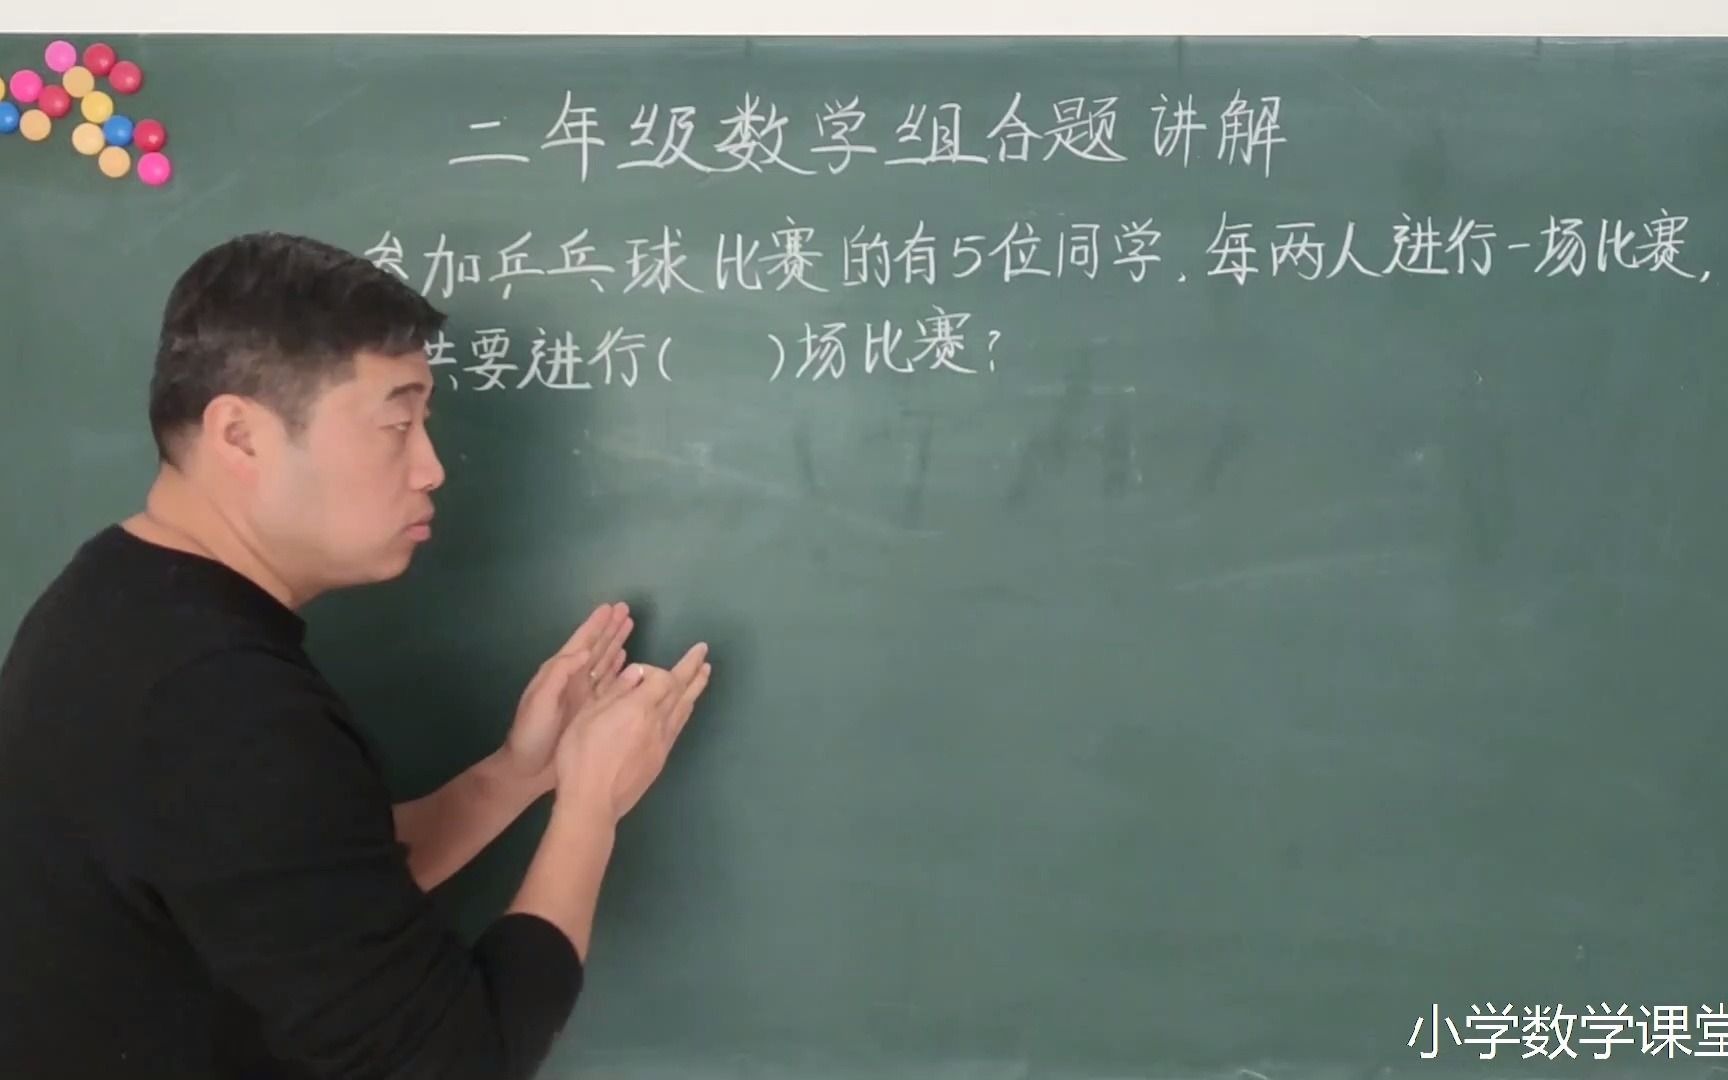 二年级数学组合题讲解
参加乒乓球比赛的有5位同学，每两人进行一场比赛，
共要进行(  )场比赛？
小学数学课堂